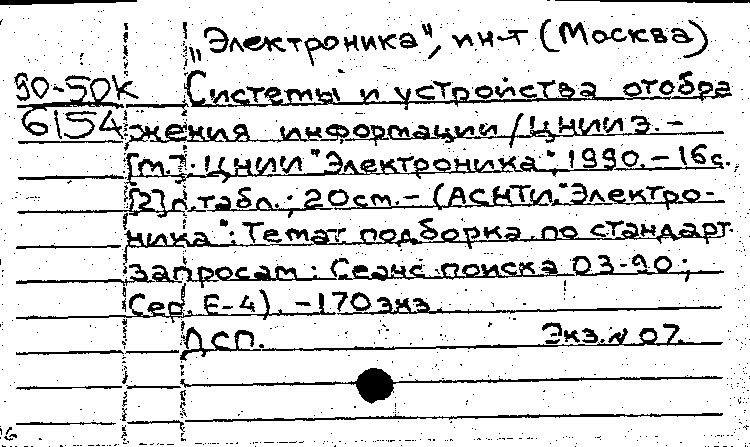 "Электроника", ин-т (Москва)
90-50К Системы и устройства отобра
6154 жения информации / ЦНИИЭ. –
[М.]: ЦНИИ "Электроника", 1990. – 16 с.,
[2] л. табл.; 20 см. – (АСНТИ. "Электро-
ника": Темат. подборка по стандарт.
запросам: Сеанс поиска 03-90;
Сер. Е-4). – 170 экз.
ДСП. Экз. № 07.